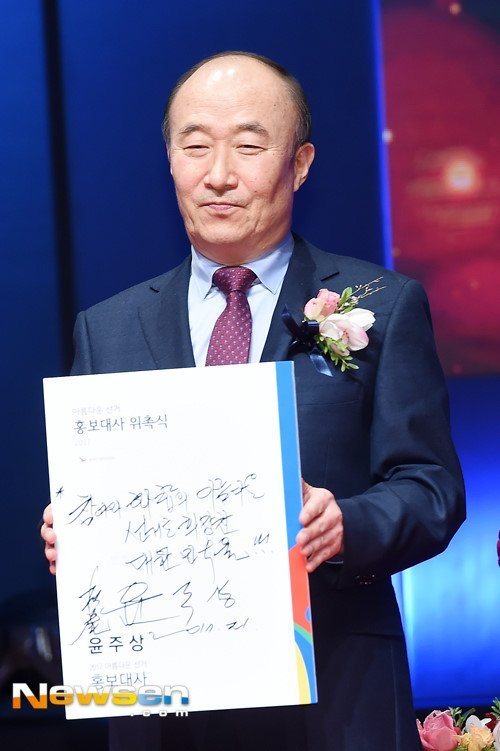 아름다운 선거
홍보대사 위촉식
2017
참여와 화합의 아름다운
선거는 희망찬
대한민국을 !!!
윤주상
2017. 21
윤주상
2017 아름다운 선거
홍보대사
Newsen
.com